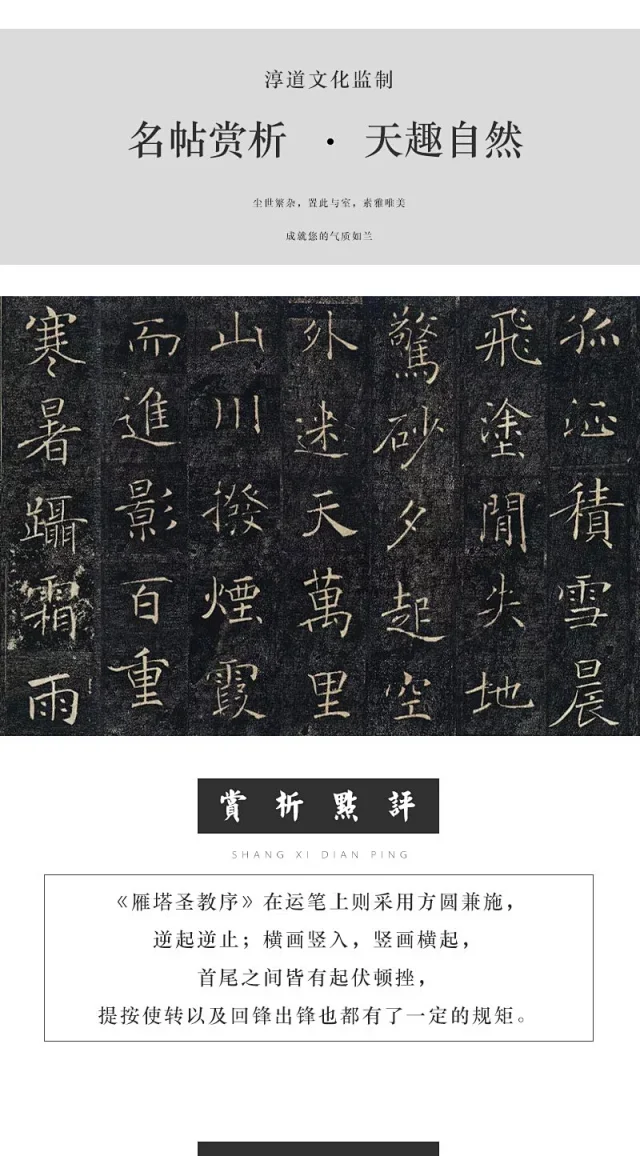 淳道文化监制
名帖赏析 · 天趣自然
尘世繁杂，置此与室，素雅唯美
成就您的气质如兰
孤征積雪晨
飛塗閒失地
驚砂夕起空
外迷天萬里
山川撥煙霞
而進影百重
寒暑躡霜雨
賞析點評
SHANG XI DIAN PING
《雁塔圣教序》在运笔上则采用方圆兼施，
逆起逆止；横画竖入，竖画横起，
首尾之间皆有起伏顿挫，
提按使转以及回锋出锋也都有了一定的规矩。